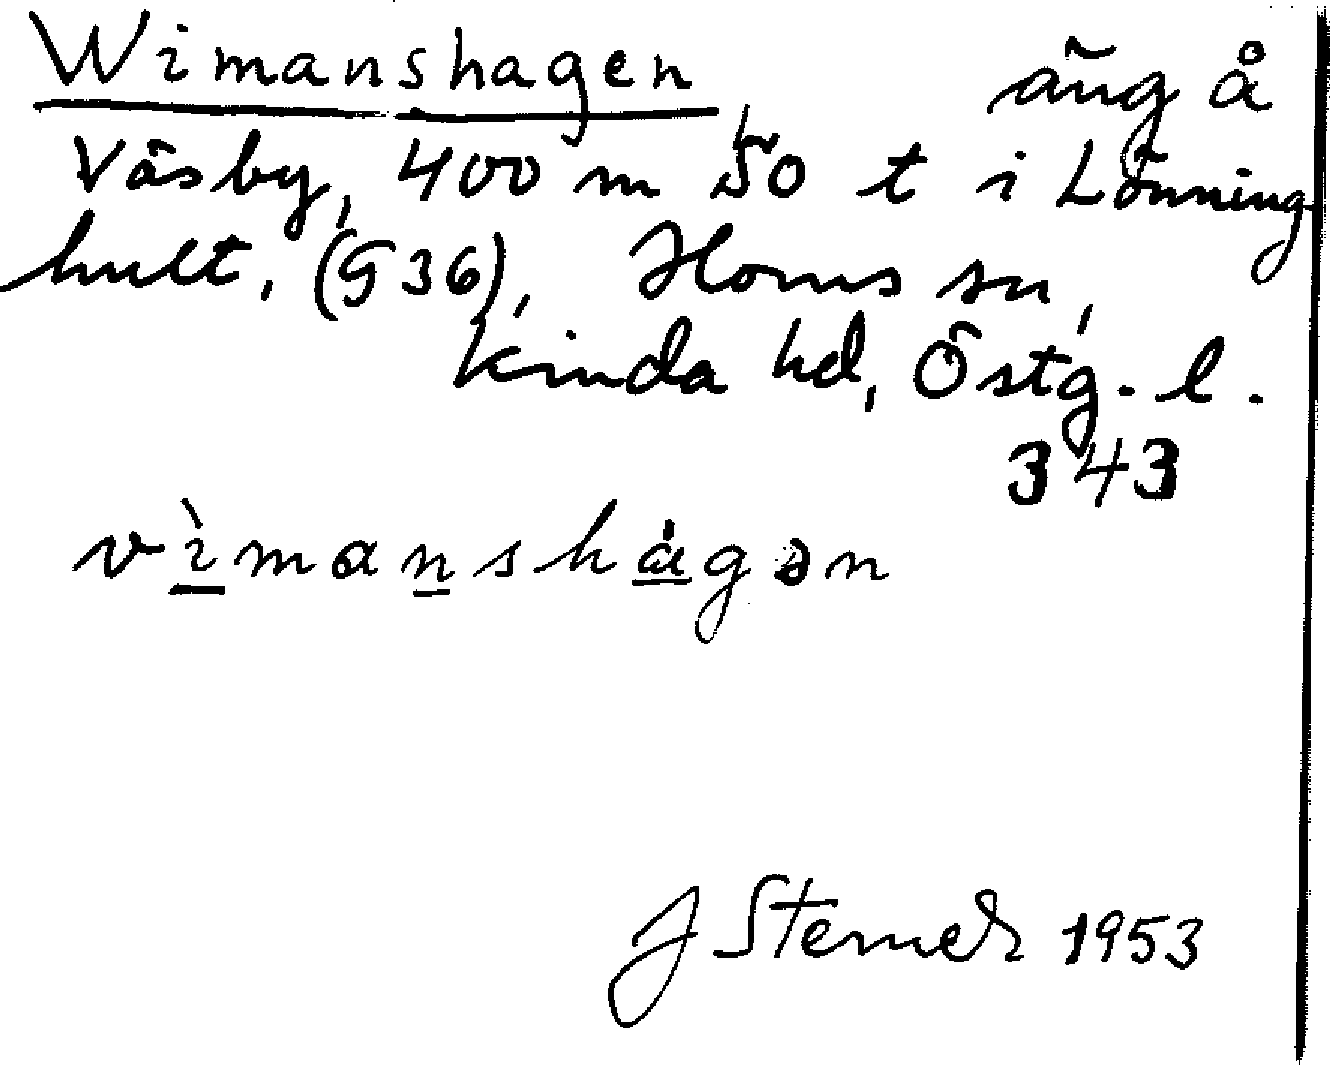 Wimanshagen, äng å
Väsby, 400 m SO t i Lönning
hult, (§ 36), Horns sn,
Kinda hd, Östg. l.
343
vìmanshágən
J Sterner 1953